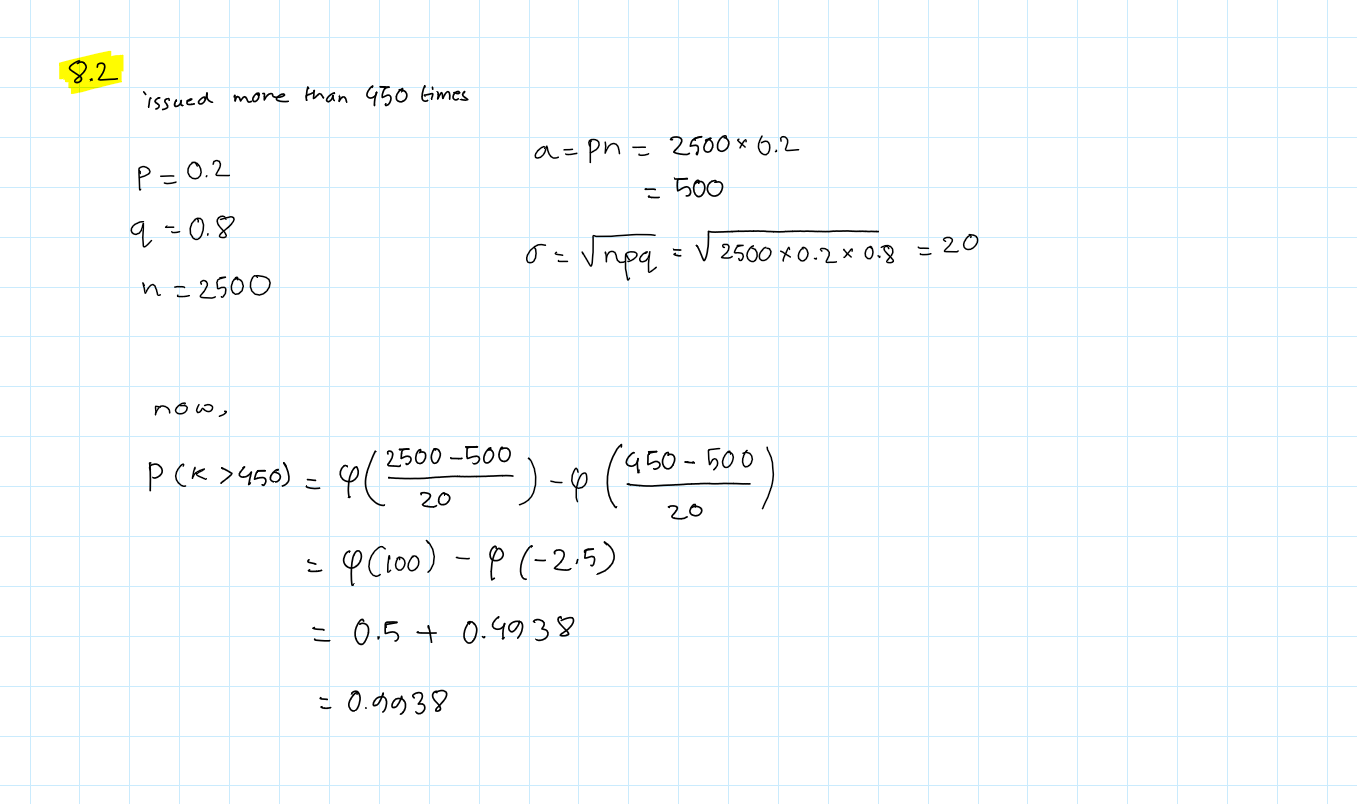 8.2
issued more than 450 times
P = 0.2
q = 0.8
n = 2500
a = pn = 2500 × 0.2
= 500
σ = √npq = √2500 × 0.2 × 0.8 = 20
now,
P (K > 450) = φ((2500 - 500)/20) - φ((450 - 500)/20)
= φ(100) - φ(-2.5)
= 0.5 + 0.4938
= 0.9938